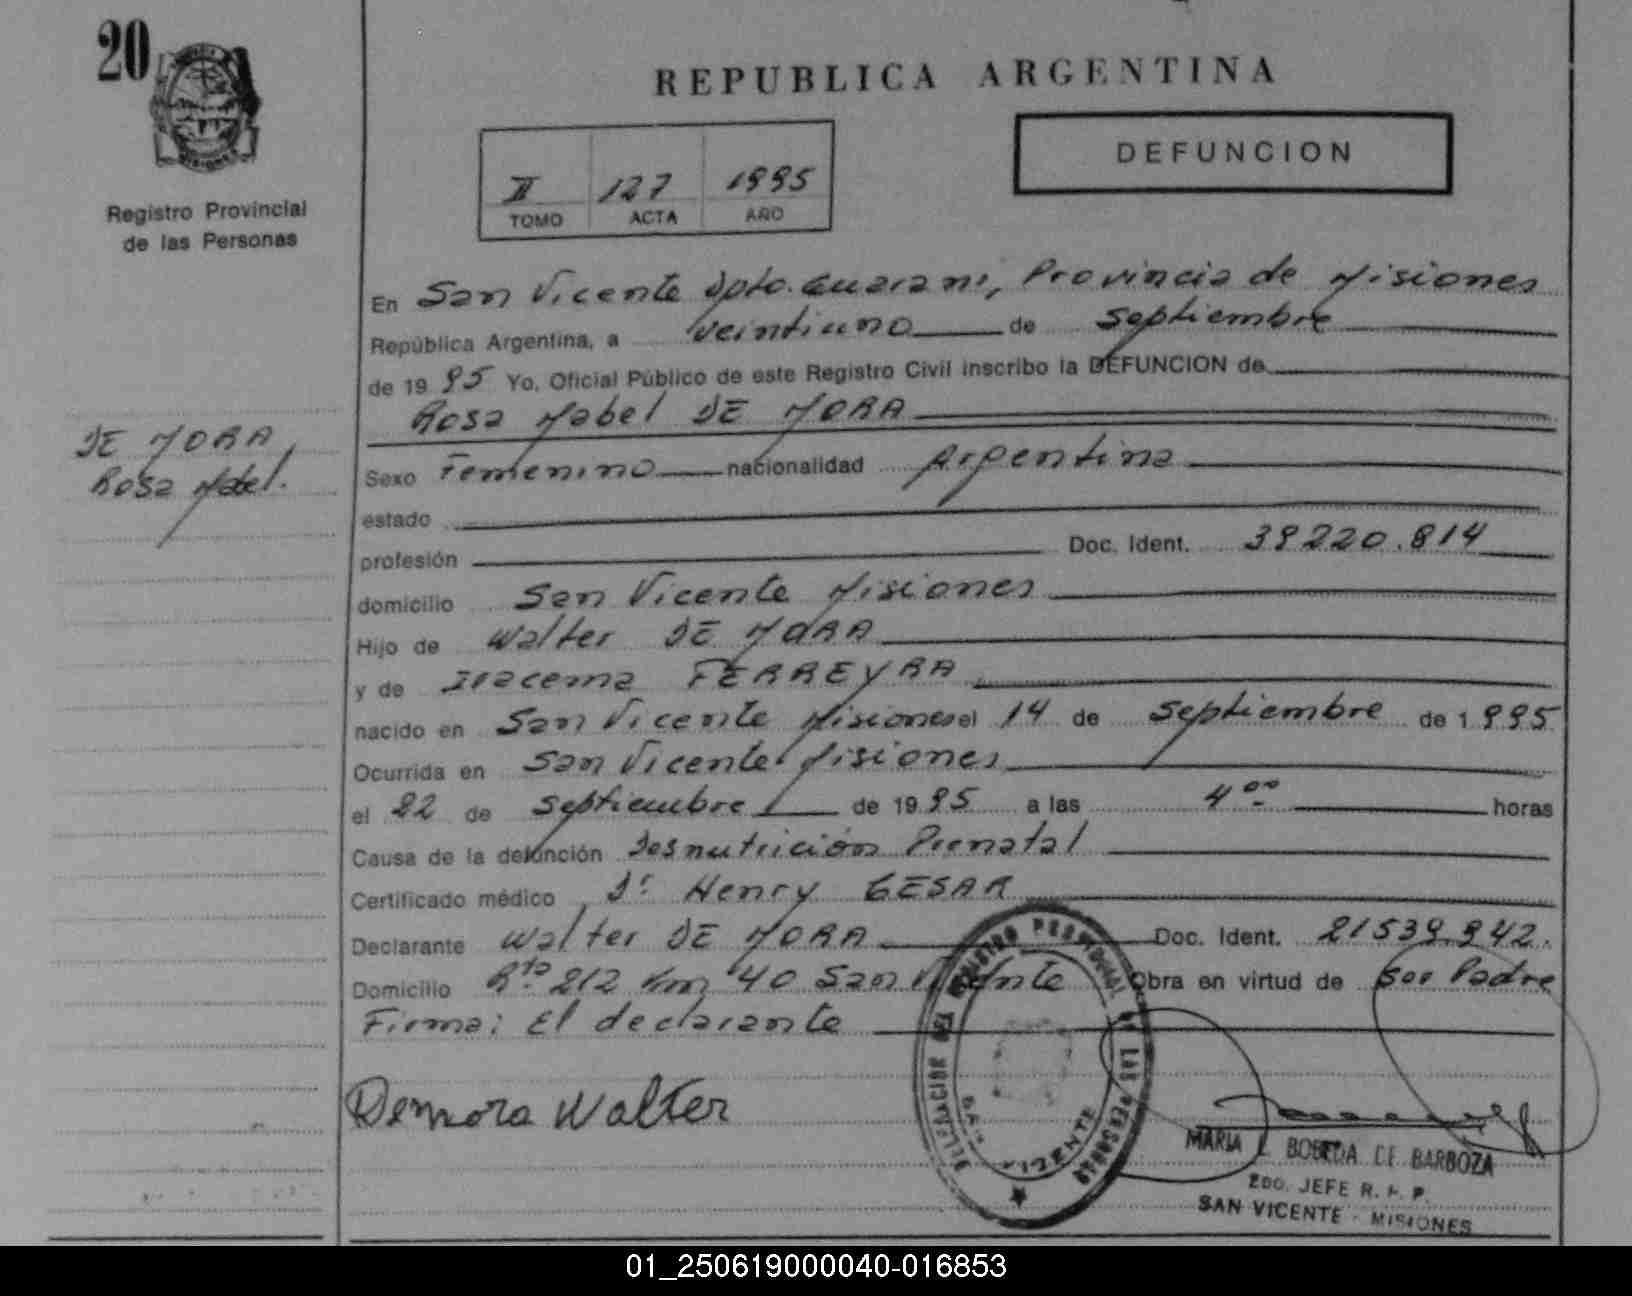 20
REPUBLICA ARGENTINA
DEFUNCION
II 127 1995
TOMO ACTA AÑO
Registro Provincial
de las Personas
En San Vicente Dpto. Guarani, Provincia de Misiones
República Argentina, a veintiuno de Septiembre
de 1995 Yo, Oficial Público de este Registro Civil inscribo la DEFUNCION de
Rosa Mabel DE MORA
DE MORA,
Rosa Mabel.
Sexo Femenino nacionalidad Argentina
estado
profesión Doc. Ident. 39220.814
domicilio San Vicente Misiones
Hijo de Walter DE MORA
y de Iracema FERREYRA
nacido en San Vicente Misiones el 14 de Septiembre de 1.995
Ocurrida en San Vicente Misiones
el 22 de Septiembre de 1995 a las 4 00 horas
Causa de la defunción Desnutrición Prenatal
Certificado médico Dr Henry CESAR
Declarante Walter DE MORA Doc. Ident. 21539.942.
Domicilio Rta. 212 Km 40 San Vicente Obra en virtud de ser Padre
Firma: El declarante
Demora Walter
DELEGACION DEL REGISTRO PROVINCIAL DE LAS PERSONAS
SAN VICENTE
MARIA E. BOBEDA DE BARBOZA
2DO. JEFE R. P. P.
SAN VICENTE - MISIONES
01_250619000040-016853